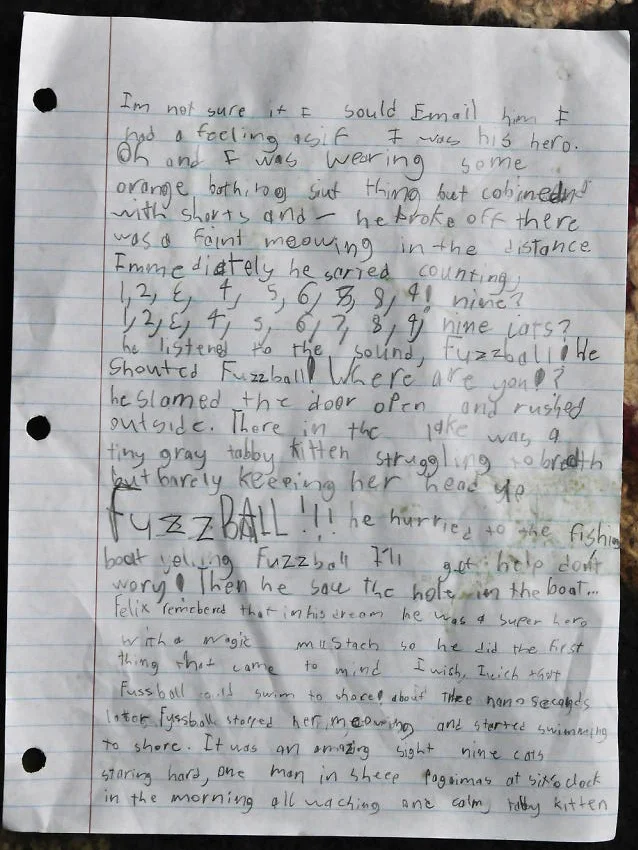 Im not sure if I sould Email him I
had a feeling asif I was his hero.
Oh and I was wearing some
orange bathing siut thing but cobined
with shorts and — he broke off there
was a faint meowing in the distance
Immediately he sarted counting,
1, 2, 3, 4, 5, 6, 7, 8, 9! nine?
1, 2, 3, 4, 5, 6, 7, 8, 9, nine cats?
he listened to the sound, Fuzzball! He
shouted Fuzzball! Where are you!?
he slamed the door open and rushed
outside. There in the lake was a
tiny gray tabby kitten struggling to breath
but barely keeping her head up
FuzzBALL!!! he hurried to the fishing
boat yelling Fuzzball I'll get help don't
wory! Then he saw the hole in the boat...
Felix remebered that in his dream he was a super hero
with a magic mustach so he did the first
thing that came to mind I wish, I wich that
Fussball could swim to shore! about three nano seconds
later, Fyssball stopped her meowing and started swimming
to shore. It was an amazing sight nine cats
staring hard, one man in sheep pagaimas at six o clock
in the morning all waching one calm tabby kitten